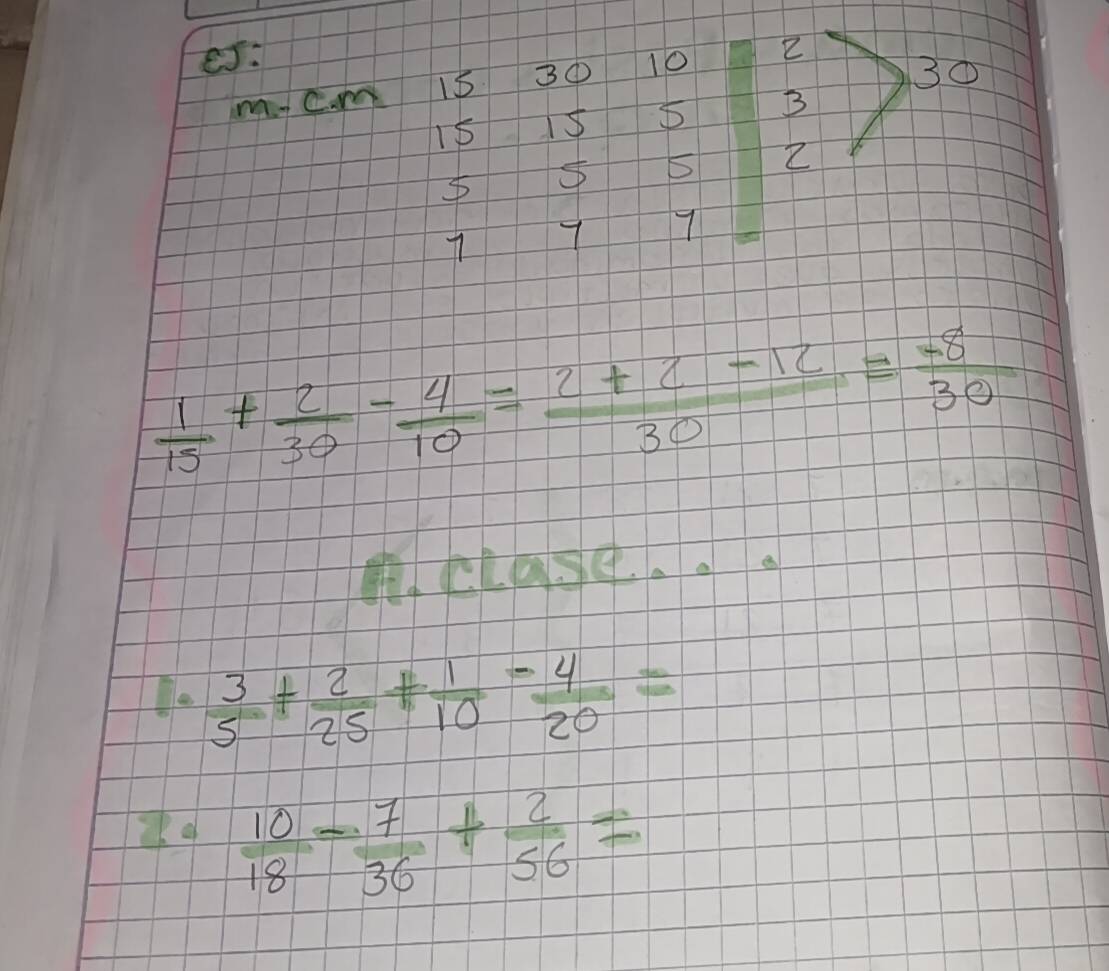 EJ:
m.c.m 15 30 10 2 30
15 15 5 3
5 5 5 2
1 1 1
1/15 + 2/30 - 4/10 = 2 + 2 - 12/30 = -8/30
A. clase...
1. 3/5 + 2/25 + 1/10 - 4/20 =
2. 10/18 - 7/36 + 2/56 =